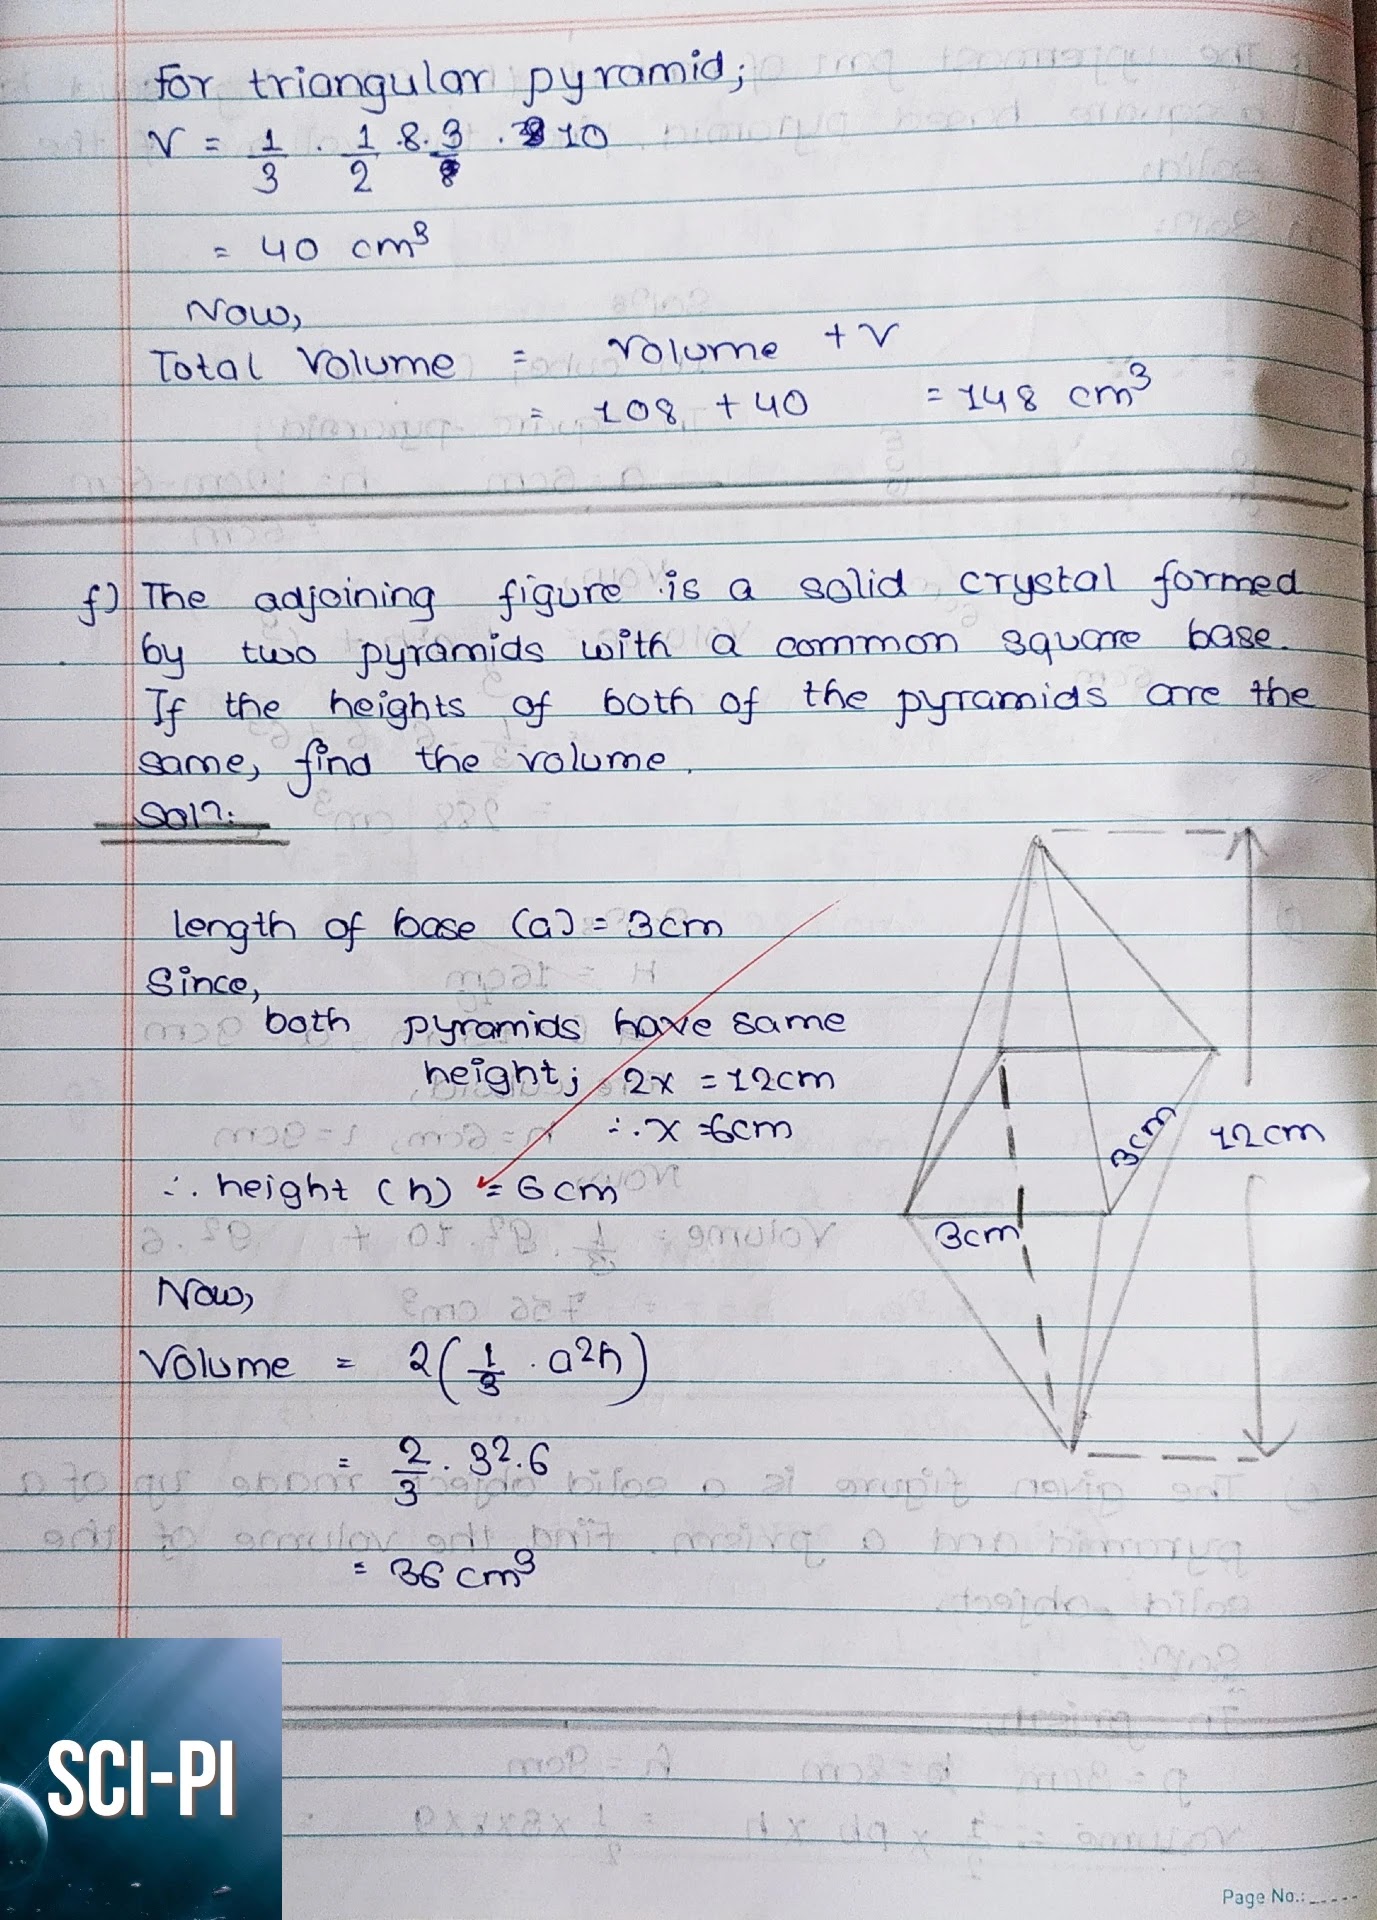 For triangular pyramid;
V = 1/3 . 1/2 . 8 . 3 . 10
= 40 cm³
Now,
Total Volume = Volume + V
= 108 + 40 = 148 cm³
f) The adjoining figure is a solid crystal formed
by two pyramids with a common square base.
If the heights of both of the pyramids are the
same, find the volume.
Solⁿ:
length of base (a) = 3cm
Since,
both pyramids have same
height; 2x = 12cm
∴ x = 6cm
∴ height (h) = 6cm
3cm
12cm
3cm
Now,
Volume = 2(1/3 . a²h)
= 2/3 . 3² . 6
= 36 cm³
SCI-PI
Page No.: